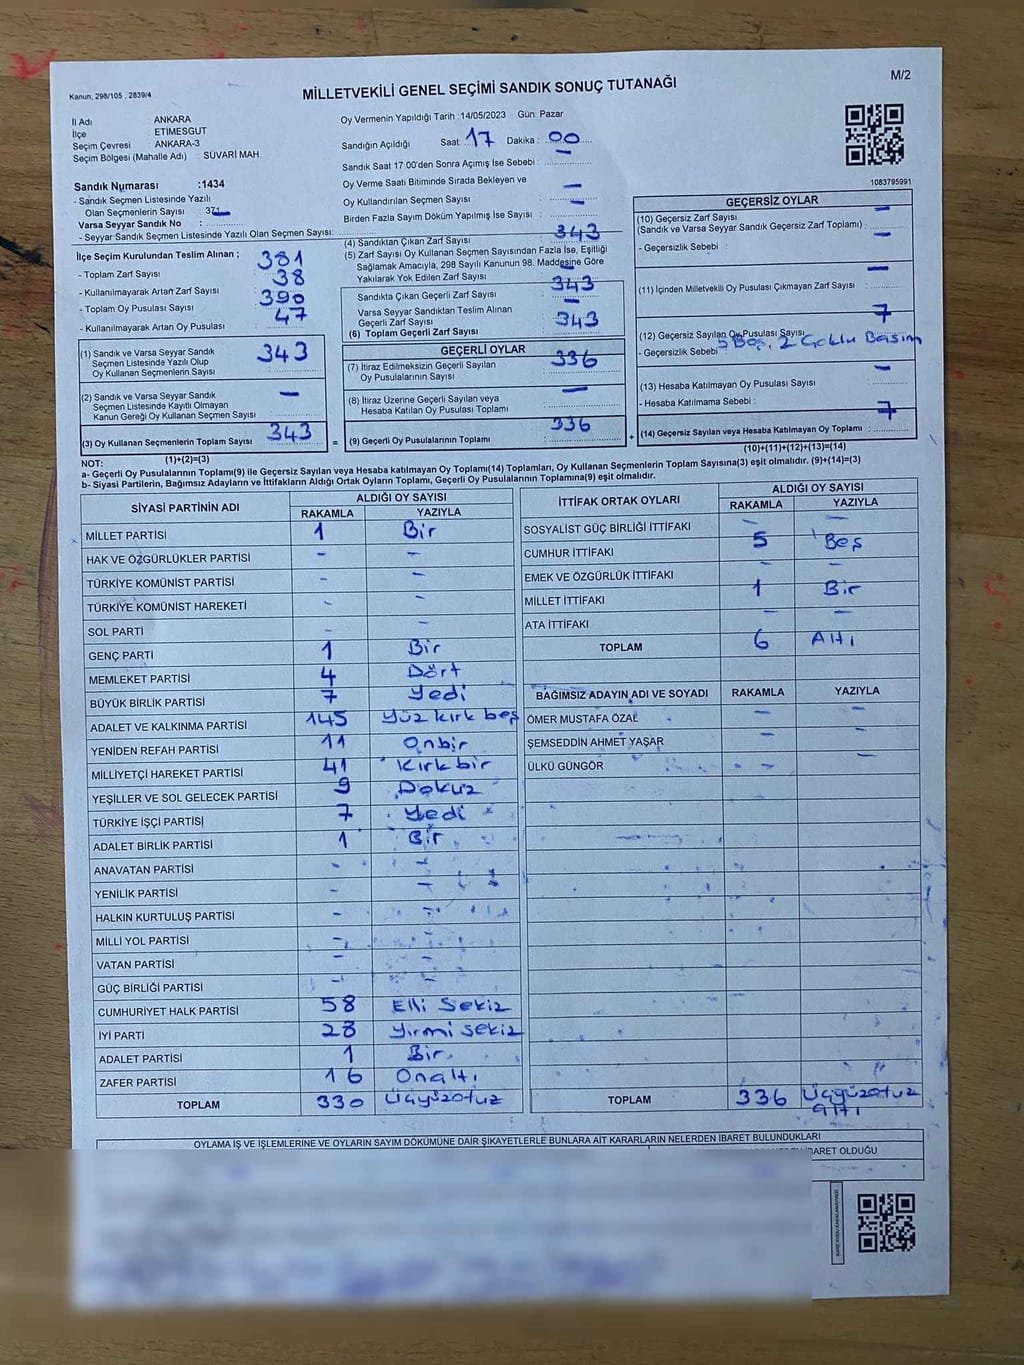 Kanun, 298/105 , 2839/4
MİLLETVEKİLİ GENEL SEÇİMİ SANDIK SONUÇ TUTANAĞI
M/2
İl Adı ANKARA
İlçe ETİMESGUT
Seçim Çevresi ANKARA-3
Seçim Bölgesi (Mahalle Adı) : SÜVARİ MAH
Sandık Numarası :1434
- Sandık Seçmen Listesinde Yazılı
Olan Seçmenlerin Sayısı : 371
Varsa Seyyar Sandık No : -
- Seyyar Sandık Seçmen Listesinde Yazılı Olan Seçmen Sayısı:
Oy Vermenin Yapıldığı Tarih :14/05/2023 Gün: Pazar
Sandığın Açıldığı Saat : 17 Dakika : 00
Sandık Saat 17:00'den Sonra Açımış İse Sebebi : -
Oy Verme Saati Bitiminde Sırada Bekleyen ve
Oy Kullandırılan Seçmen Sayısı : -
Birden Fazla Sayım Döküm Yapılmış İse Sayısı : -
1083795991
İlçe Seçim Kurulundan Teslim Alınan ;
- Toplam Zarf Sayısı : 381
- Kullanılmayarak Artan Zarf Sayısı : 38
- Toplam Oy Pusulası Sayısı : 390
- Kullanılmayarak Artan Oy Pusulası : 47
(1) Sandık ve Varsa Seyyar Sandık
Seçmen Listesinde Yazılı Olup
Oy Kullanan Seçmenlerin Sayısı : 343
(2) Sandık ve Varsa Seyyar Sandık
Seçmen Listesinde Kayıtlı Olmayan
Kanun Gereği Oy Kullanan Seçmen Sayısı : -
(3) Oy Kullanan Seçmenlerin Toplam Sayısı : 343
(1)+(2)=(3)
(4) Sandıktan Çıkan Zarf Sayısı : 343
(5) Zarf Sayısı Oy Kullanan Seçmen Sayısından Fazla İse, Eşitliği
Sağlamak Amacıyla, 298 Sayılı Kanunun 98. Maddesine Göre
Yakılarak Yok Edilen Zarf Sayısı : -
Sandıkta Çıkan Geçerli Zarf Sayısı : 343
Varsa Seyyar Sandıktan Teslim Alınan
Geçerli Zarf Sayısı : -
(6) Toplam Geçerli Zarf Sayısı : 343
GEÇERLİ OYLAR
(7) İtiraz Edilmeksizin Geçerli Sayılan
Oy Pusulalarının Sayısı : 336
(8) İtiraz Üzerine Geçerli Sayılan veya
Hesaba Katılan Oy Pusulası Toplamı : -
= (9) Geçerli Oy Pusulalarının Toplamı : 336
GEÇERSİZ OYLAR
(10) Geçersiz Zarf Sayısı
(Sandık ve Varsa Seyyar Sandık Geçersiz Zarf Toplamı) : -
- Geçersizlik Sebebi : -
(11) İçinden Milletvekili Oy Pusulası Çıkmayan Zarf Sayısı : -
(12) Geçersiz Sayılan Oy Pusulası Sayısı : 7
- Geçersizlik Sebebi : 5 Boş, 2 Çoklu Basım
(13) Hesaba Katılmayan Oy Pusulası Sayısı : -
- Hesaba Katılmama Sebebi :
+ (14) Geçersiz Sayılan veya Hesaba Katılmayan Oy Toplamı : 7
(10)+(11)+(12)+(13)=(14)
NOT:
a- Geçerli Oy Pusulalarının Toplamı(9) ile Geçersiz Sayılan veya Hesaba katılmayan Oy Toplamı(14) Toplamları, Oy Kullanan Seçmenlerin Toplam Sayısına(3) eşit olmalıdır. (9)+(14)=(3)
b- Siyasi Partilerin, Bağımsız Adayların ve İttifakların Aldığı Ortak Oyların Toplamı, Geçerli Oy Pusulalarının Toplamına(9) eşit olmalıdır.
SİYASİ PARTİNİN ADI ALDIĞI OY SAYISI
RAKAMLA YAZIYLA
MİLLET PARTİSİ 1 Bir
HAK VE ÖZGÜRLÜKLER PARTİSİ - -
TÜRKİYE KOMÜNİST PARTİSİ - -
TÜRKİYE KOMÜNİST HAREKETİ - -
SOL PARTİ - -
GENÇ PARTİ 1 Bir
MEMLEKET PARTİSİ 4 Dört
BÜYÜK BİRLİK PARTİSİ 7 Yedi
ADALET VE KALKINMA PARTİSİ 145 Yüz kırk beş
YENİDEN REFAH PARTİSİ 11 Onbir
MİLLİYETÇİ HAREKET PARTİSİ 41 Kırk bir
YEŞİLLER VE SOL GELECEK PARTİSİ 9 Dokuz
TÜRKİYE İŞÇİ PARTİSİ 7 Yedi
ADALET BİRLİK PARTİSİ 1 Bir
ANAVATAN PARTİSİ - -
YENİLİK PARTİSİ - -
HALKIN KURTULUŞ PARTİSİ - -
MİLLİ YOL PARTİSİ - -
VATAN PARTİSİ - -
GÜÇ BİRLİĞİ PARTİSİ - -
CUMHURİYET HALK PARTİSİ 58 Elli Sekiz
İYİ PARTİ 28 Yirmi sekiz
ADALET PARTİSİ 1 Bir
ZAFER PARTİSİ 16 Onaltı
TOPLAM 330 Üçyüzotuz
İTTİFAK ORTAK OYLARI ALDIĞI OY SAYISI
RAKAMLA YAZIYLA
SOSYALİST GÜÇ BİRLİĞİ İTTİFAKI - -
CUMHUR İTTİFAKI 5 Beş
EMEK VE ÖZGÜRLÜK İTTİFAKI - -
MİLLET İTTİFAKI 1 Bir
ATA İTTİFAKI - -
TOPLAM 6 Altı
BAĞIMSIZ ADAYIN ADI VE SOYADI RAKAMLA YAZIYLA
ÖMER MUSTAFA ÖZAL - -
ŞEMSEDDİN AHMET YAŞAR - -
ÜLKÜ GÜNGÖR - -
TOPLAM 336 Üçyüzotuz altı
OYLAMA İŞ VE İŞLEMLERİNE VE OYLARIN SAYIM DÖKÜMÜNE DAİR ŞİKAYETLERLE BUNLARA AİT KARARLARIN NELERDEN İBARET BULUNDUKLARI
OLDUĞU